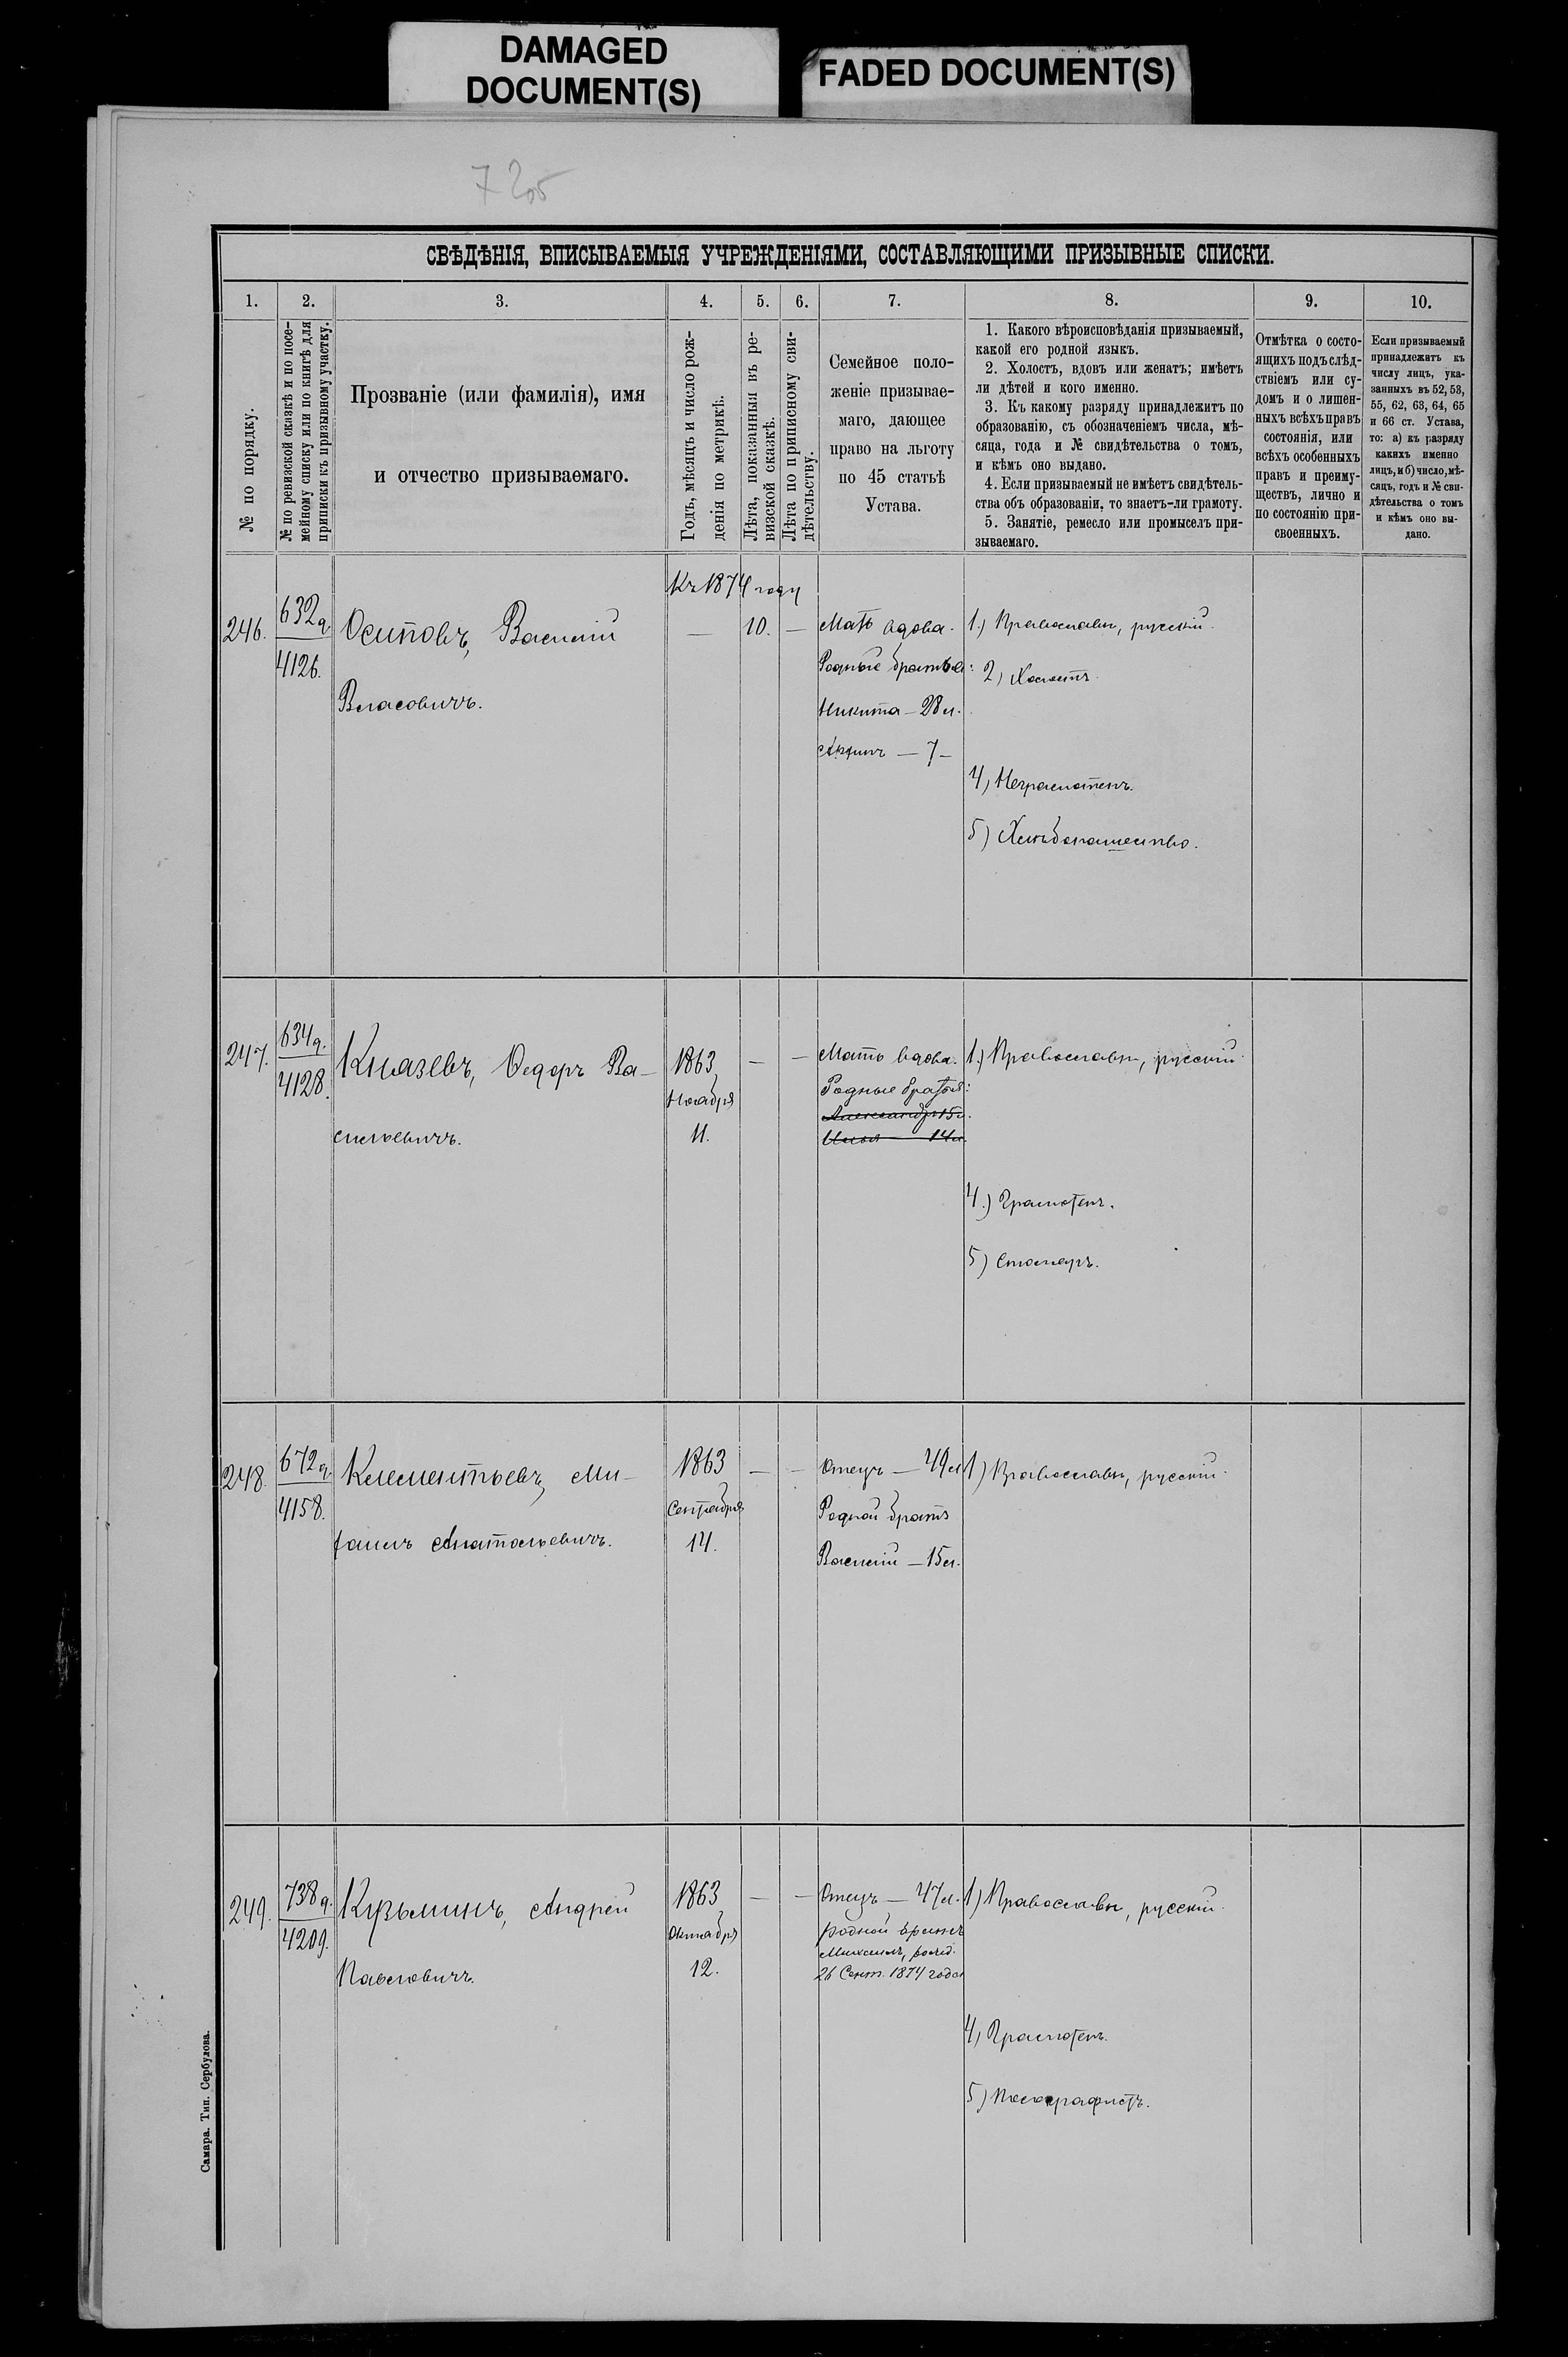 DAMAGED
DOCUMENT(S)
FADED DOCUMENT(S)
СВѢДѢНІЯ, ВПИСЫВАЕМЫЯ УЧРЕЖДЕНІЯМИ, СОСТАВЛЯЮЩИМИ ПРИЗЫВНЫЕ СПИСКИ.
1. 2. 3. 4. 5. 6. 7. 8. 9. 10.
№ по порядку.
№ по ревизской сказкѣ и по посе-
мейному списку или по книгѣ для
приписки къ призывному участку.
Прозваніе (или фамилія), имя
и отчество призываемаго.
Годъ, мѣсяцъ и число рож-
денія по метрикѣ.
Лѣта, показанныя въ ре-
визской сказкѣ.
Лѣта по приписному сви-
дѣтельству.
Семейное поло-
женіе призывае-
маго, дающее
право на льготу
по 45 статьѣ
Устава.
1. Какого вѣроисповѣданія призываемый,
какой его родной языкъ.
2. Холостъ, вдовъ или женатъ; имѣетъ
ли дѣтей и кого именно.
3. Къ какому разряду принадлежитъ по
образованію, съ обозначеніемъ числа, мѣ-
сяца, года и № свидѣтельства о томъ,
и кѣмъ оно выдано.
4. Если призываемый не имѣетъ свидѣтель-
ства объ образованіи, то знаетъ-ли грамоту.
5. Занятіе, ремесло или промыселъ при-
зываемаго.
Отмѣтка о состо-
ящихъ подъ слѣд-
ствіемъ или су-
домъ и о лишен-
ныхъ всѣхъ правъ
состоянія, или
всѣхъ особенныхъ
правъ и преиму-
ществъ, лично и
по состоянію при-
своенныхъ.
Если призываемый
принадлежитъ къ
числу лицъ, ука-
занныхъ въ 52, 53,
55, 62, 63, 64, 65
и 66 ст. Устава,
то: а) къ разряду
какихъ именно
лицъ, и б) число, мѣ-
сяцъ, годъ и № сви-
дѣтельства о томъ
и кѣмъ оно вы-
дано.
Къ 1874 году
246. 632 д. Осиповъ, Василій — 10. — Мать вдова. 1.) Православн, русскій.
4126. Родные братья: 2) Холостъ.
Власовичъ. Никита — 28 л.
— 7 —
4) Неграмотенъ.
5) Хлѣбопашество.
247. 634 д. Князевъ, Ѳедоръ Ва- 1863 — — Мать вдова. 1.) Православн, русскій.
4128. Ноября Родные братья:
Александръ 15 л.
сильевичъ. 11. Илья 14 л.
4.) Грамотенъ.
5) Столяръ.
248. 672 д. Клементьевъ, Ми- 1863 — — Отецъ — 49 л. 1) Православн, русскій.
4158. Сентября Родной братъ
хаилъ Анатольевичъ. 14. Василій — 15 л.
249. 738 д. Кузьминъ, Андрей 1863 — — Отецъ — 47 л. 1) Православн, русскій.
4209. Октября родной братъ
Михаилъ, рожд.
Павловичъ. 12. 26 Сент. 1874 года
4) Грамотенъ.
5)
Самара. Тип. Сербулова.